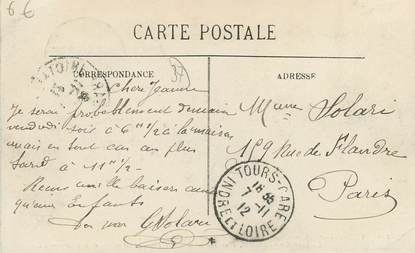 66
CARTE POSTALE
CORRESPONDANCE
ADRESSE
37
Cher Jeanne
Je serai probablement demain
vendredi soir à 6h 1/2 à la maison
mais en tout cas au plus
tard à 11h 1/2
mille baisers aux
Enfants
Ton GSolari
Solari
159 Rue de Flandre
Paris
TOURS-GARE
18 35
7 - 11
12
INDRE ET LOIRE